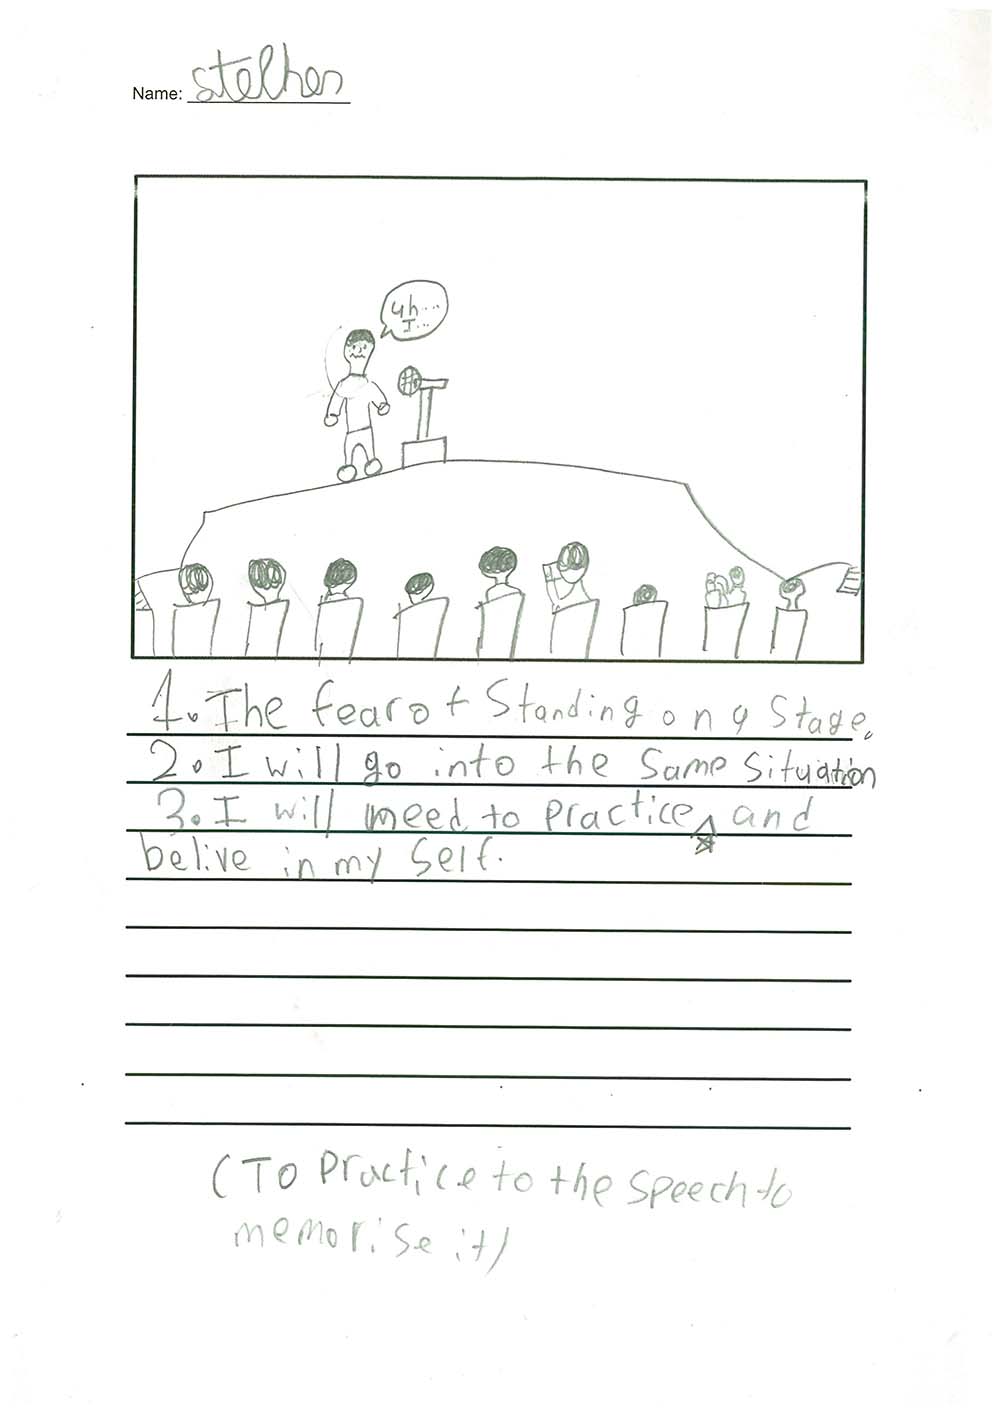 Name: stelhen
uh...
I...
1. The fear of Standing on a Stage.
2. I will go into the Same Situation
3. I will need to practice and
belive in my self.
(To Practice to the speech to
memorise it)